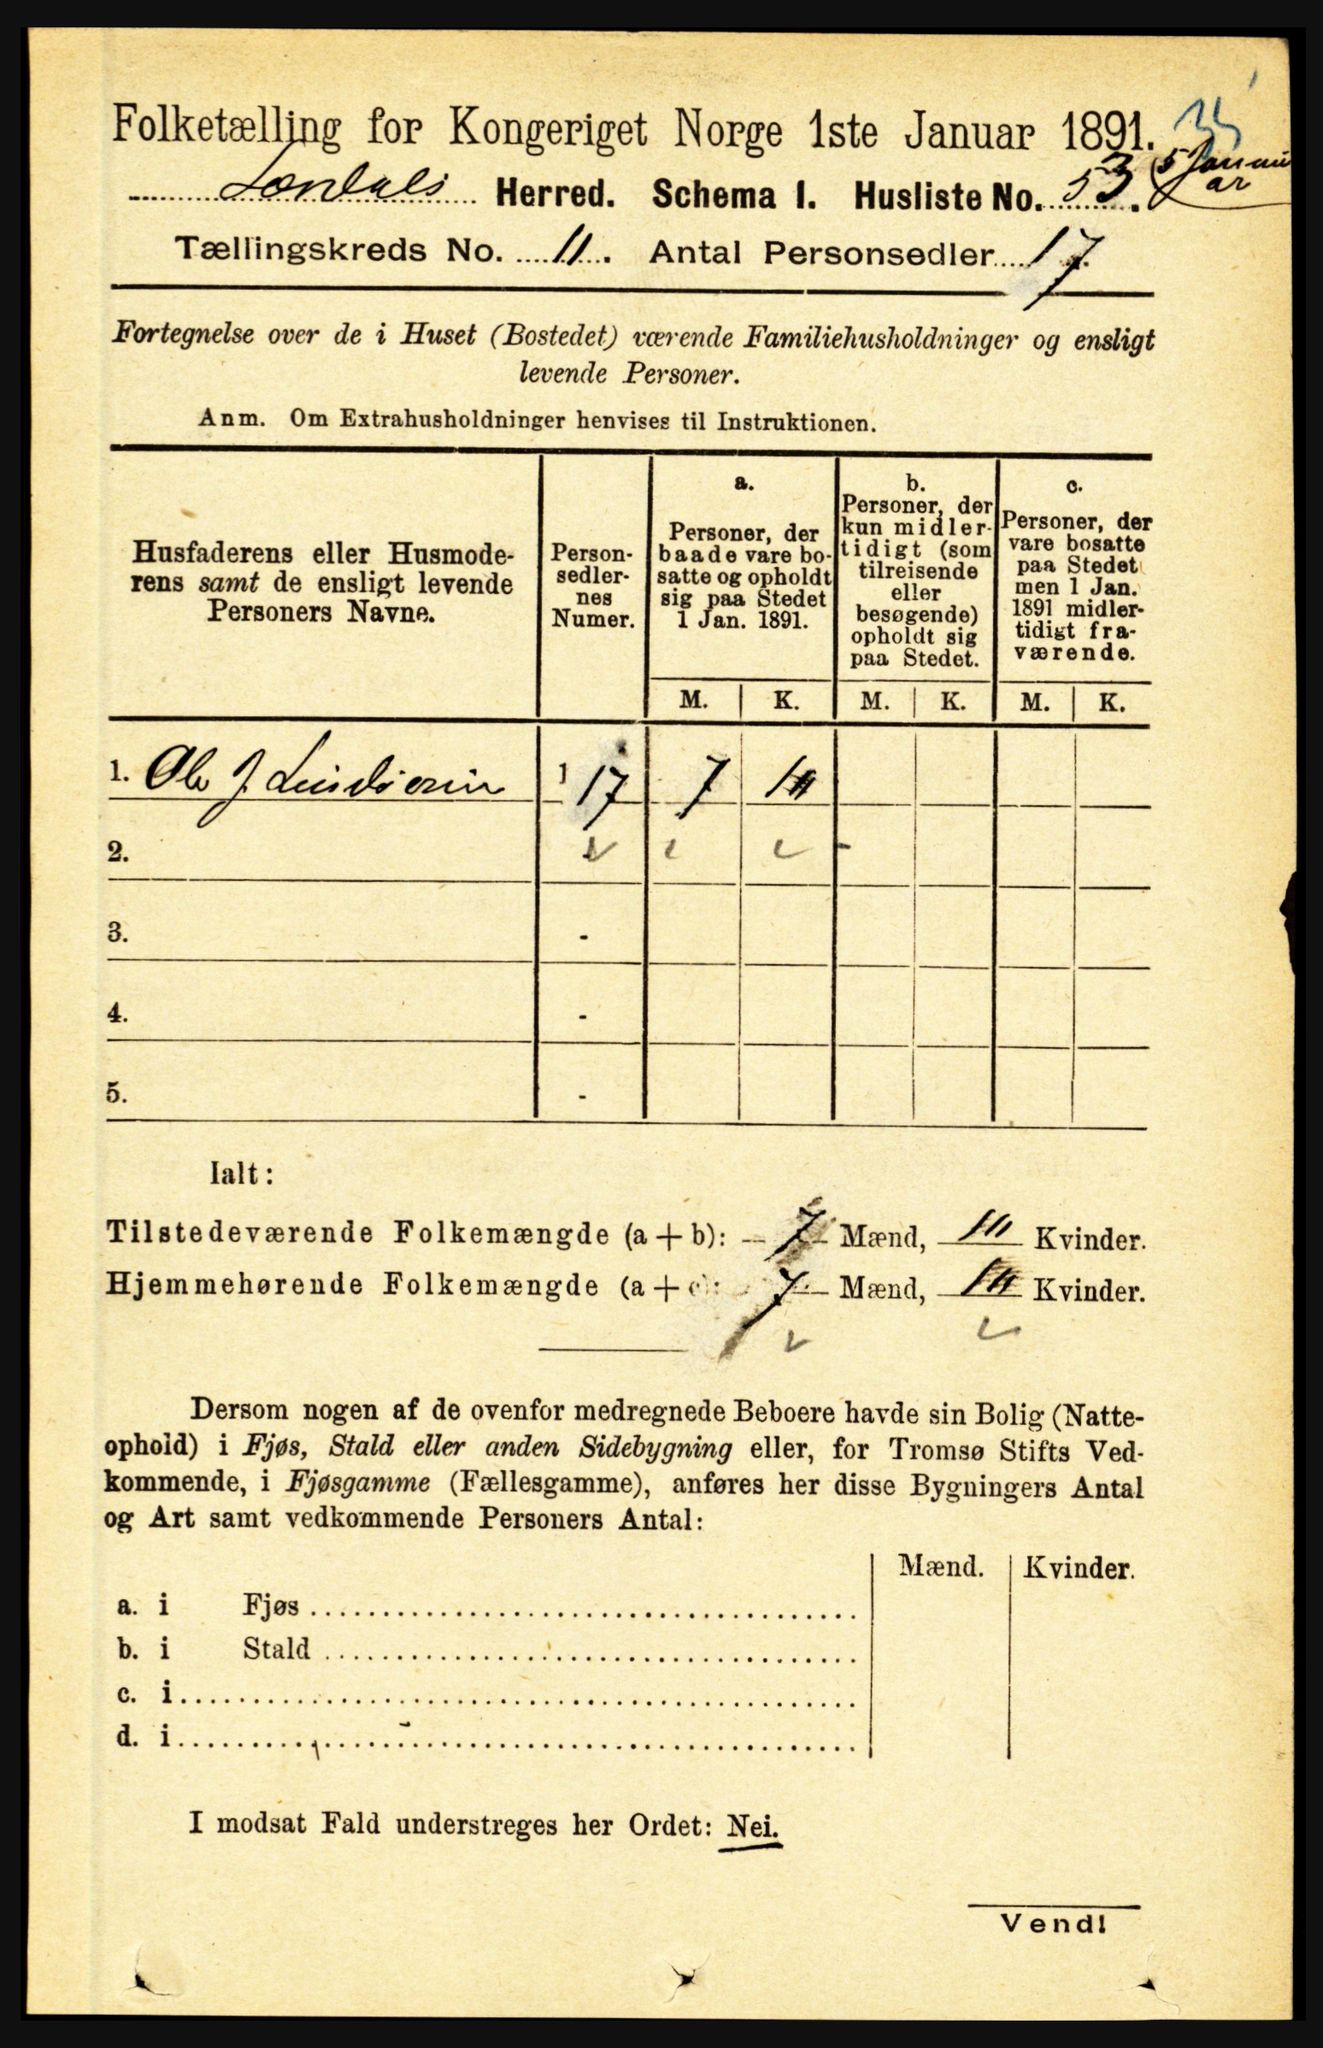 Folketælling for Kongeriget Norge 1ste Januar 1891.
35
5 Januar
Lærdals Herred. Schema I. Husliste No. 53.
Tællingskreds No. 11. Antal Personsedler 17
Fortegnelse over de i Huset (Bostedet) værende Familiehusholdninger og ensligt
levende Personer.
Anm. Om Extrahusholdninger henvises til Instruktionen.
Husfaderens eller Husmode-
rens samt de ensligt levende
Personers Navne.
Person-
sedler-
nes
Numer.
a.
Personer, der
baade vare bo-
satte og opholdt
sig paa Stedet
1 Jan. 1891.
b.
Personer, der
kun midler-
tidigt (som
tilreisende
eller
besøgende)
opholdt sig
paa Stedet.
c.
Personer, der
vare bosatte
paa Stedet
men 1 Jan.
1891 midler-
tidigt fra-
værende.
M. K. M. K. M. K.
1. Ole J. 1 17 7 10
2.
3. -
4. -
5. -
Ialt:
Tilstedeværende Folkemængde (a + b): 7 Mænd, 10 Kvinder.
Hjemmehørende Folkemængde (a + c): 7 Mænd, 10 Kvinder.
Dersom nogen af de ovenfor medregnede Beboere havde sin Bolig (Natte-
ophold) i Fjøs, Stald eller anden Sidebygning eller, for Tromsø Stifts Ved-
kommende, i Fjøsgamme (Fællesgamme), anføres her disse Bygningers Antal
og Art samt vedkommende Personers Antal:
Mænd. Kvinder.
a. i Fjøs
b. i Stald
c. i
d. i
I modsat Fald understreges her Ordet: Nei.
Vend!